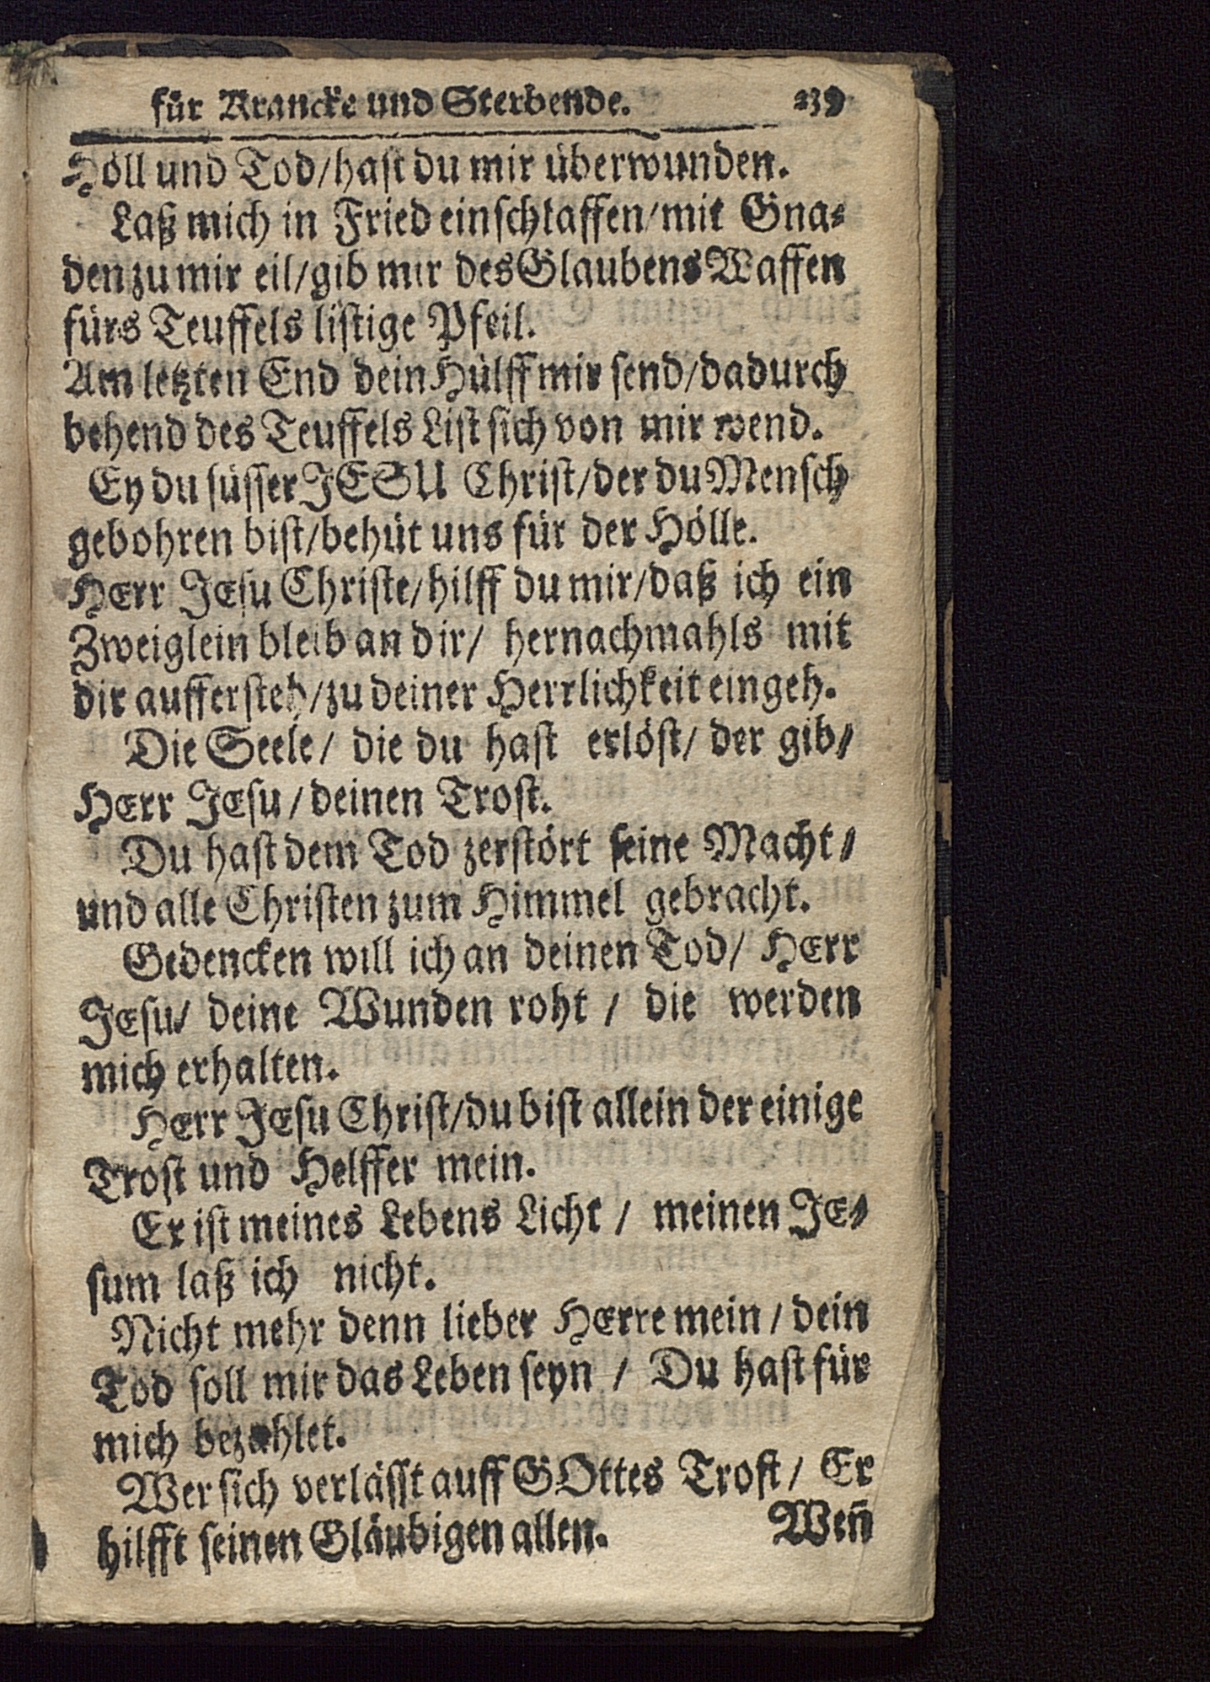 für Krancke und Sterbende. 239
Höll und Tod/hast du mir überwunden.
Laß mich in Fried einschlaffen/mit Gna-
den zu mir eil/gib mir des Glaubens Waffen
fürs Teuffels listige Pfeil.
Am letzten End dein Hülff mir send/dadurch
behend des Teuffels List sich von mir wend.
Ey du süsser JESU Christ/der du Mensch
gebohren bist/behüt uns für der Hölle.
HErr JEsu Christe/hilff du mir/daß ich ein
Zweiglein bleib an dir/ hernachmahls mit
dir aufferSteh/zu deiner Herrlichkeit eingeh.
Die Seele/ die du hast erlöst/ der gib/
HErr JEsu/deinen Trost.
Du hast dem Tod zerstört seine Macht/
und alle Christen zum Himmel gebracht.
Gedencken will ich an deinen Tod/ HErr
JEsu/ deine Wunden roht / die werden
mich erhalten.
HErr JEsu Christ/du bist allein der einige
Trost und Helffer mein.
Er ist meines Lebens Licht / meinen JE-
sum laß ich nicht.
Nicht mehr denn lieber HErre mein / dein
Tod soll mir das Leben seyn / Du hast für
mich bezahlet.
Wer sich verlässt auff GOttes Trost/ Er
hilfft seinen Gläubigen allen. Weñ